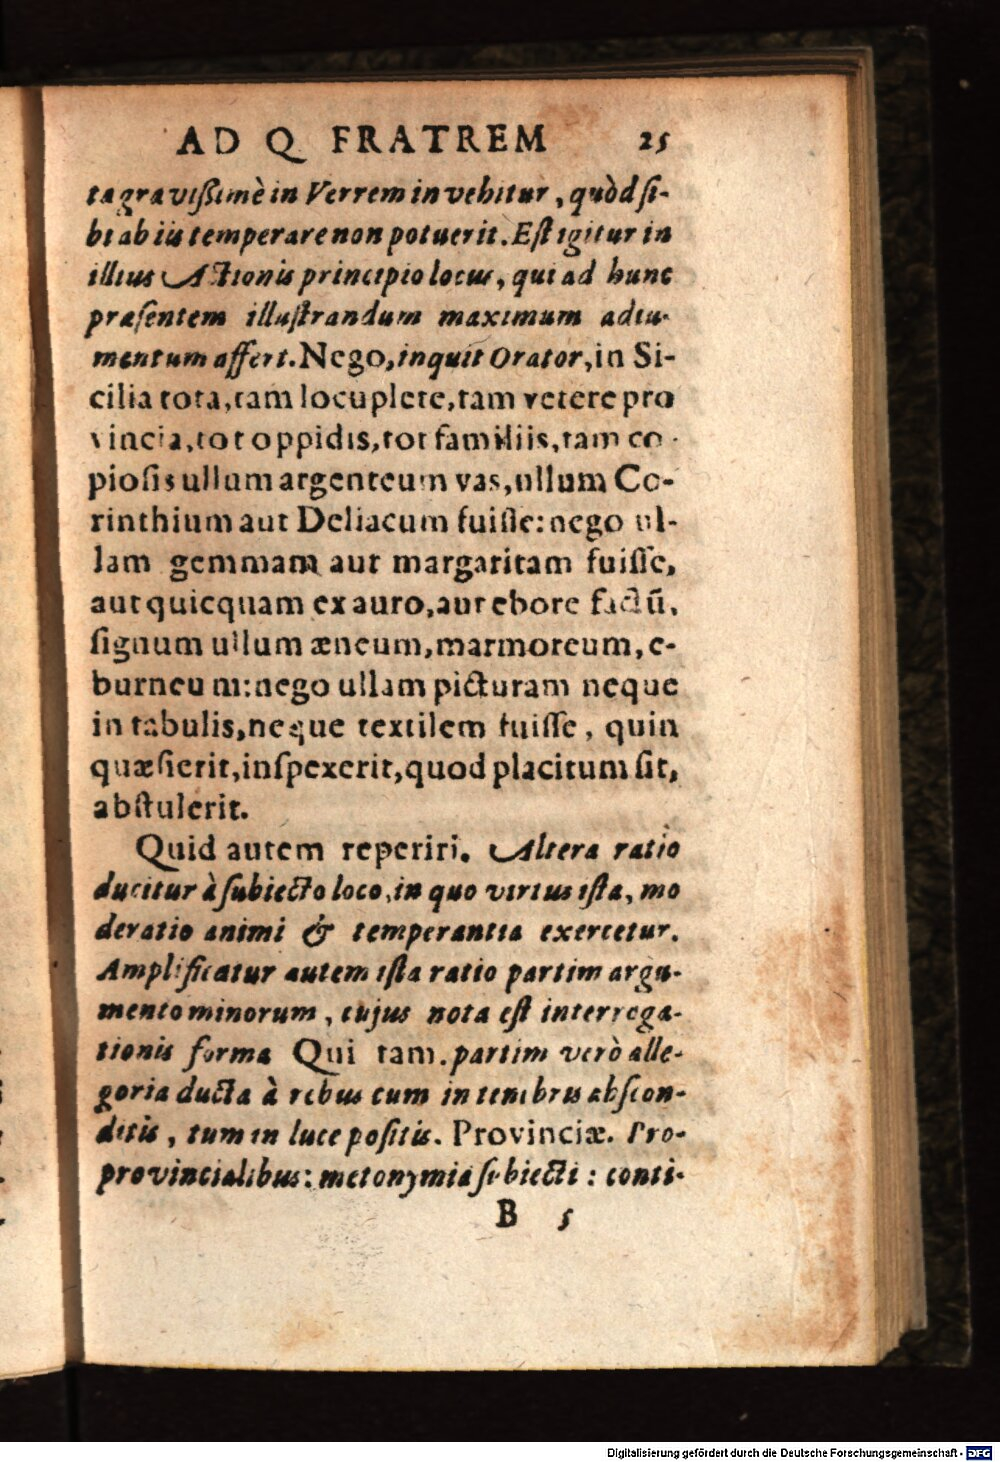 AD Q FRATREM 25
ta gravissimè in Verrem invehitur, quòd si-
bi ab iis temperare non potuerit. Est igitur in
illius Actionis principio locus, qui ad hunc
præsentem illustrandum maximum adiu-
mentum affert. Nego, inquit Orator, in Si-
cilia tota, tam locuplete, tam vetere pro
vincia, tot oppidis, tot familiis, tam co-
piosis ullum argenteum vas, ullum Co-
rinthium aut Deliacum fuisse: nego ul-
lam gemmam aut margaritam fuisse,
aut quicquam ex auro, aut ebore factū,
signum ullum æneum, marmoreum, e-
burneum: nego ullam picturam neque
in tabulis, neque textilem fuisse, quin
quæsierit, inspexerit, quod placitum sit,
abstulerit.
Quid autem reperiri. Altera ratio
ducitur à subiecto loco, in quo virtus ista, mo
deratio animi & temperantia exercetur.
Amplificatur autem ista ratio partim argu-
mento minorum, cujus nota est interroga-
tionis forma Qui tam. partim verò alle-
goria ducta à rebus cum in tenebris abscon-
ditis, tum in luce positis. Provinciæ. Pro-
provincialibus: metonymia subiecti: conti-
B 5
Digitalisierung gefördert durch die Deutsche Forschungsgemeinschaft - DFG